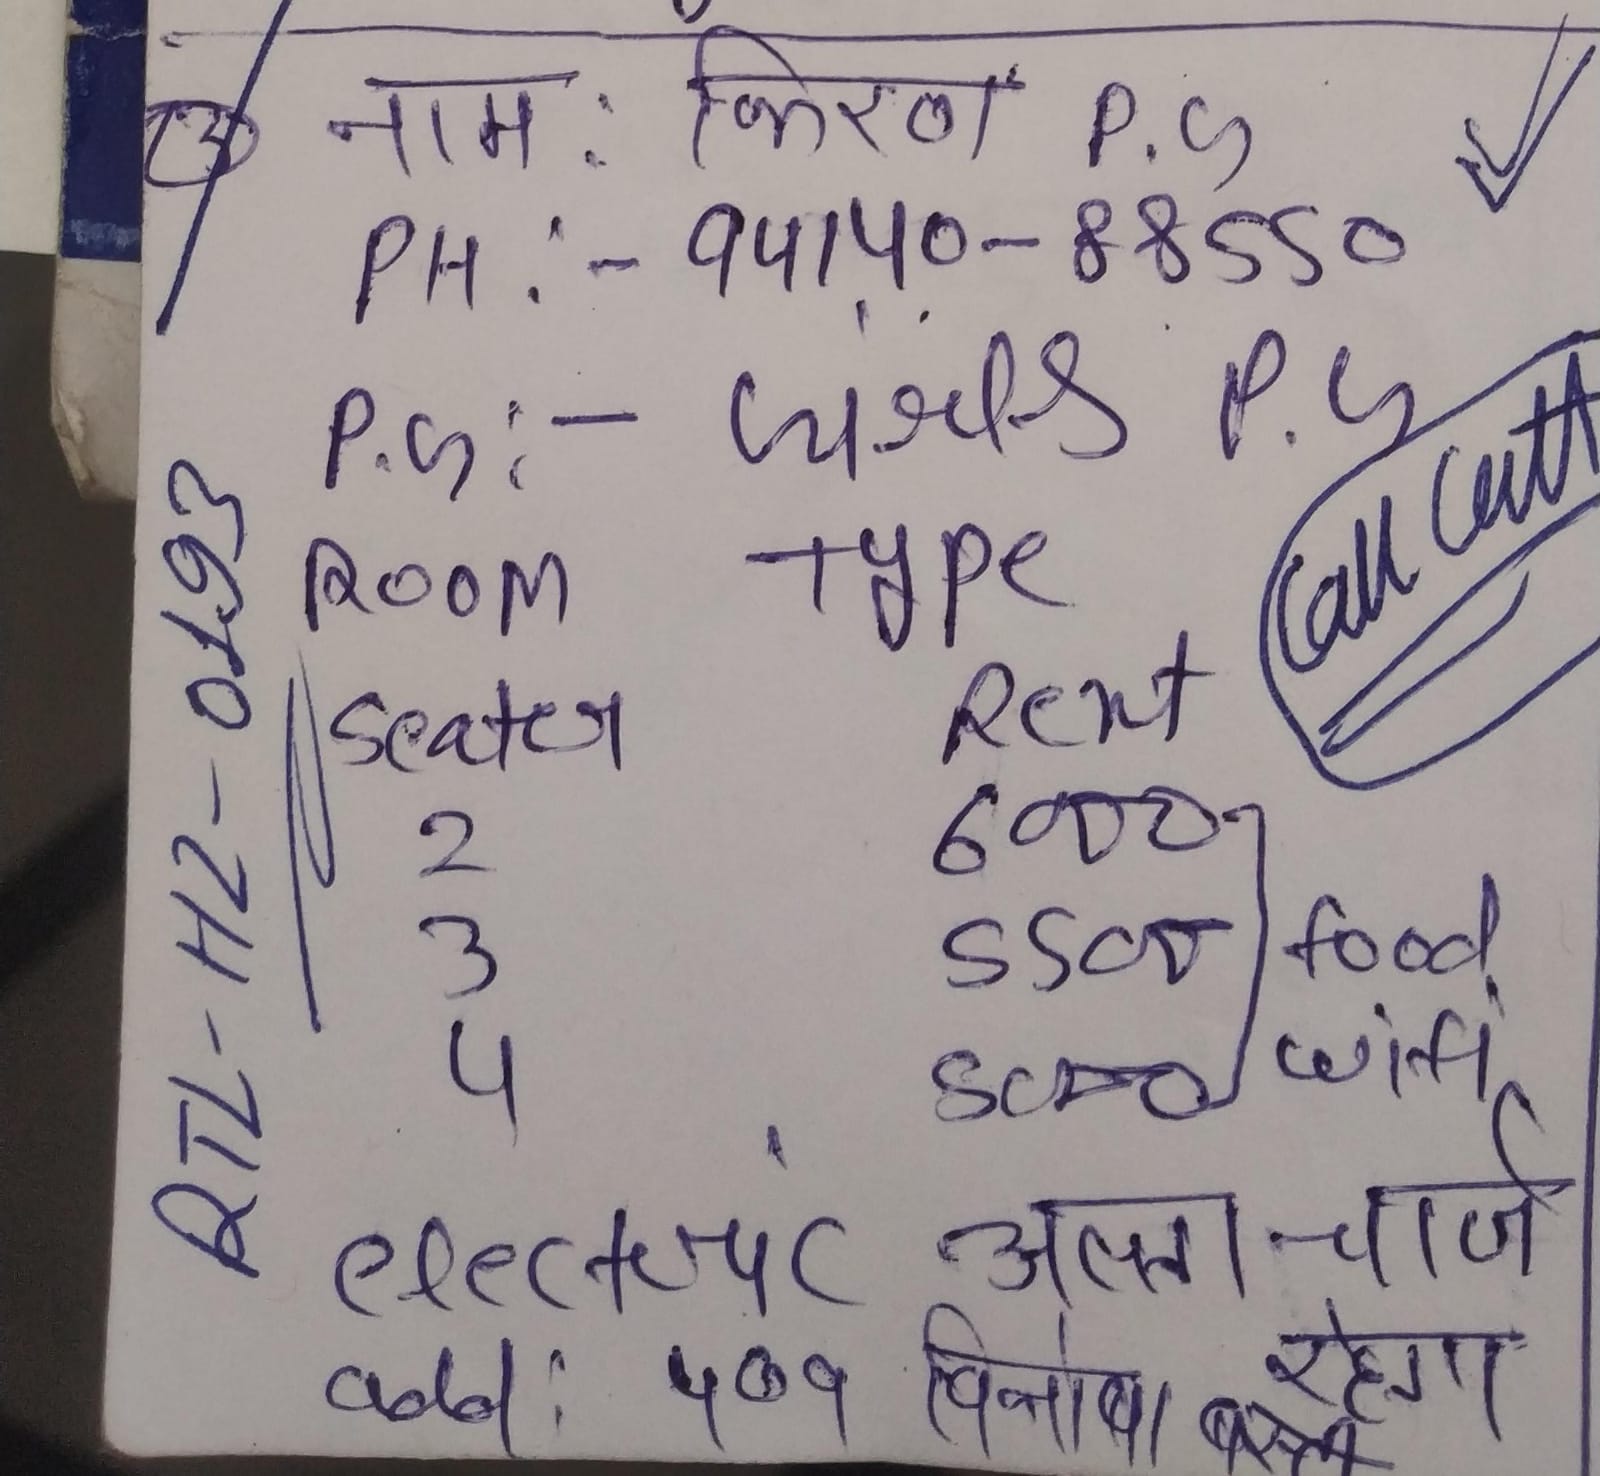 3 नाम: किरण P.G
PH :- 94140-88550
P.G :- गर्ल्स P.G
Room Type
Seater Rent
2 6000
3 5500 food
4 5000 wifi
electric अलग चार्ज
रहेगा
add: 409 विनोबा बस्ती
RTL-H2-0193
Call